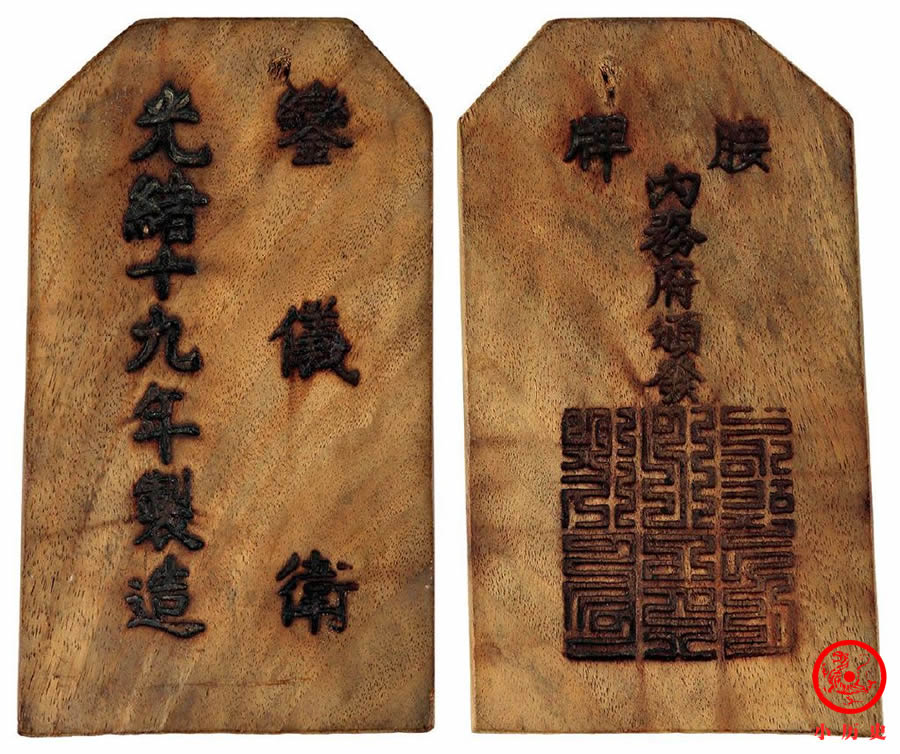 鑾儀衛
光緒十九年製造
腰牌
內務府頒發
小历史